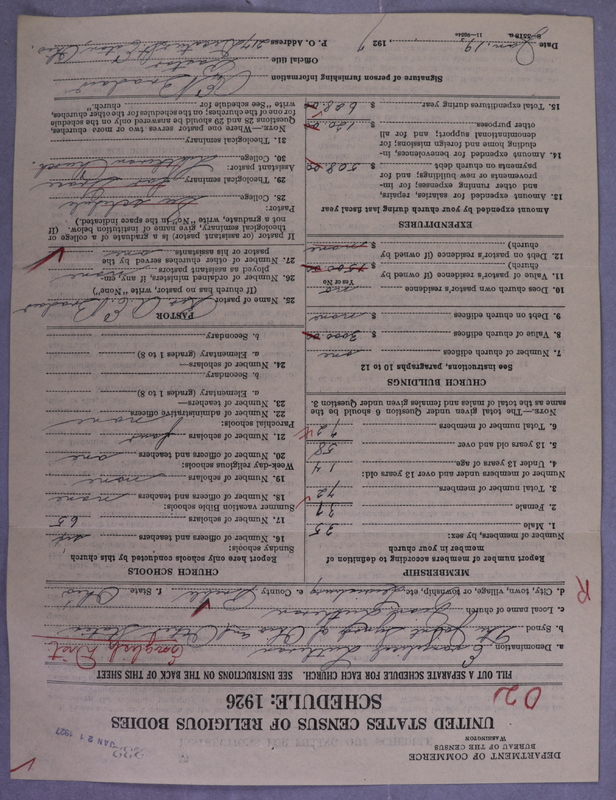 DEPARTMENT OF COMMERCE
BUREAU OF THE CENSUS
WASHINGTON
JAN 21 1927
UNITED STATES CENSUS OF RELIGIOUS BODIES
SCHEDULE: 1926
FILL OUT A SEPARATE SCHEDULE FOR EACH CHURCH. SEE INSTRUCTIONS ON THE BACK OF THIS SHEET
a. Denomination Evangelical Lutheran
English Dist
b. Synod The Joint Synod of Ohio and Other States
c. Local name of church Lutheran
d. City, town, village, or township, etc. e. County Preble f. State Ohio
MEMBERSHIP
Report number of members according to definition of member in your church
Number of members, by sex:
1. Male 35
2. Female 37
3. Total number of members 72
Number of members under and over 13 years old:
4. Under 13 years of age 14
5. 13 years old and over 58
6. Total number of members 72
NOTE.—The total given under Question 6 should be the same as the total of males and females given under Question 3.
CHURCH BUILDINGS
See instructions, paragraphs 10 to 12
7. Number of church edifices one
8. Value of church edifices $ 3000.00
9. Debt on church edifices $ none
10. Does church own pastor's residence no
Yes or No
11. Value of pastor's residence (if owned by church) $ 1500.00
12. Debt on pastor's residence (if owned by church) $ none
EXPENDITURES
Amount expended by your church during last fiscal year
13. Amount expended for salaries, repairs, and other running expenses; for improvements or new buildings; and for payments on church debt $ 508.00
14. Amount expended for benevolences, including home and foreign missions; for denominational support; and for all other purposes $ 120.00
15. Total expenditures during year $ 628.00
CHURCH SCHOOLS
Report here only schools conducted by this church
Sunday schools:
16. Number of officers and teachers
17. Number of scholars 65
Summer vacation Bible schools:
18. Number of officers and teachers none
19. Number of scholars none
Week-day religious schools:
20. Number of officers and teachers one
21. Number of scholars four
Parochial schools:
22. Number of administrative officers none
23. Number of teachers—
a. Elementary (grades 1 to 8)
b. Secondary
24. Number of scholars—
a. Elementary (grades 1 to 8)
b. Secondary
PASTOR
25. Name of pastor Rev.
(If church has no pastor, write "None")
26. Number of ordained ministers, if any, employed as assistant pastors none
27. Number of other churches served by the pastor or his assistants one
If pastor (or assistant pastor) is a graduate of a college or theological seminary, give name of institution below. (If not a graduate, write "No" in the space indicated.)
Pastor:
28. College
29. Theological seminary
Assistant pastor:
30. College
31. Theological seminary
NOTE.—Where one pastor serves two or more churches, Questions 28 and 29 should be answered only on the schedule for one of the churches; on the schedules for the other churches, write "See schedule for church."
Signature of person furnishing information
Official title Pastor
P. O. Address Eaton, Ohio
Date Jan. 19, 1927
8—5518a